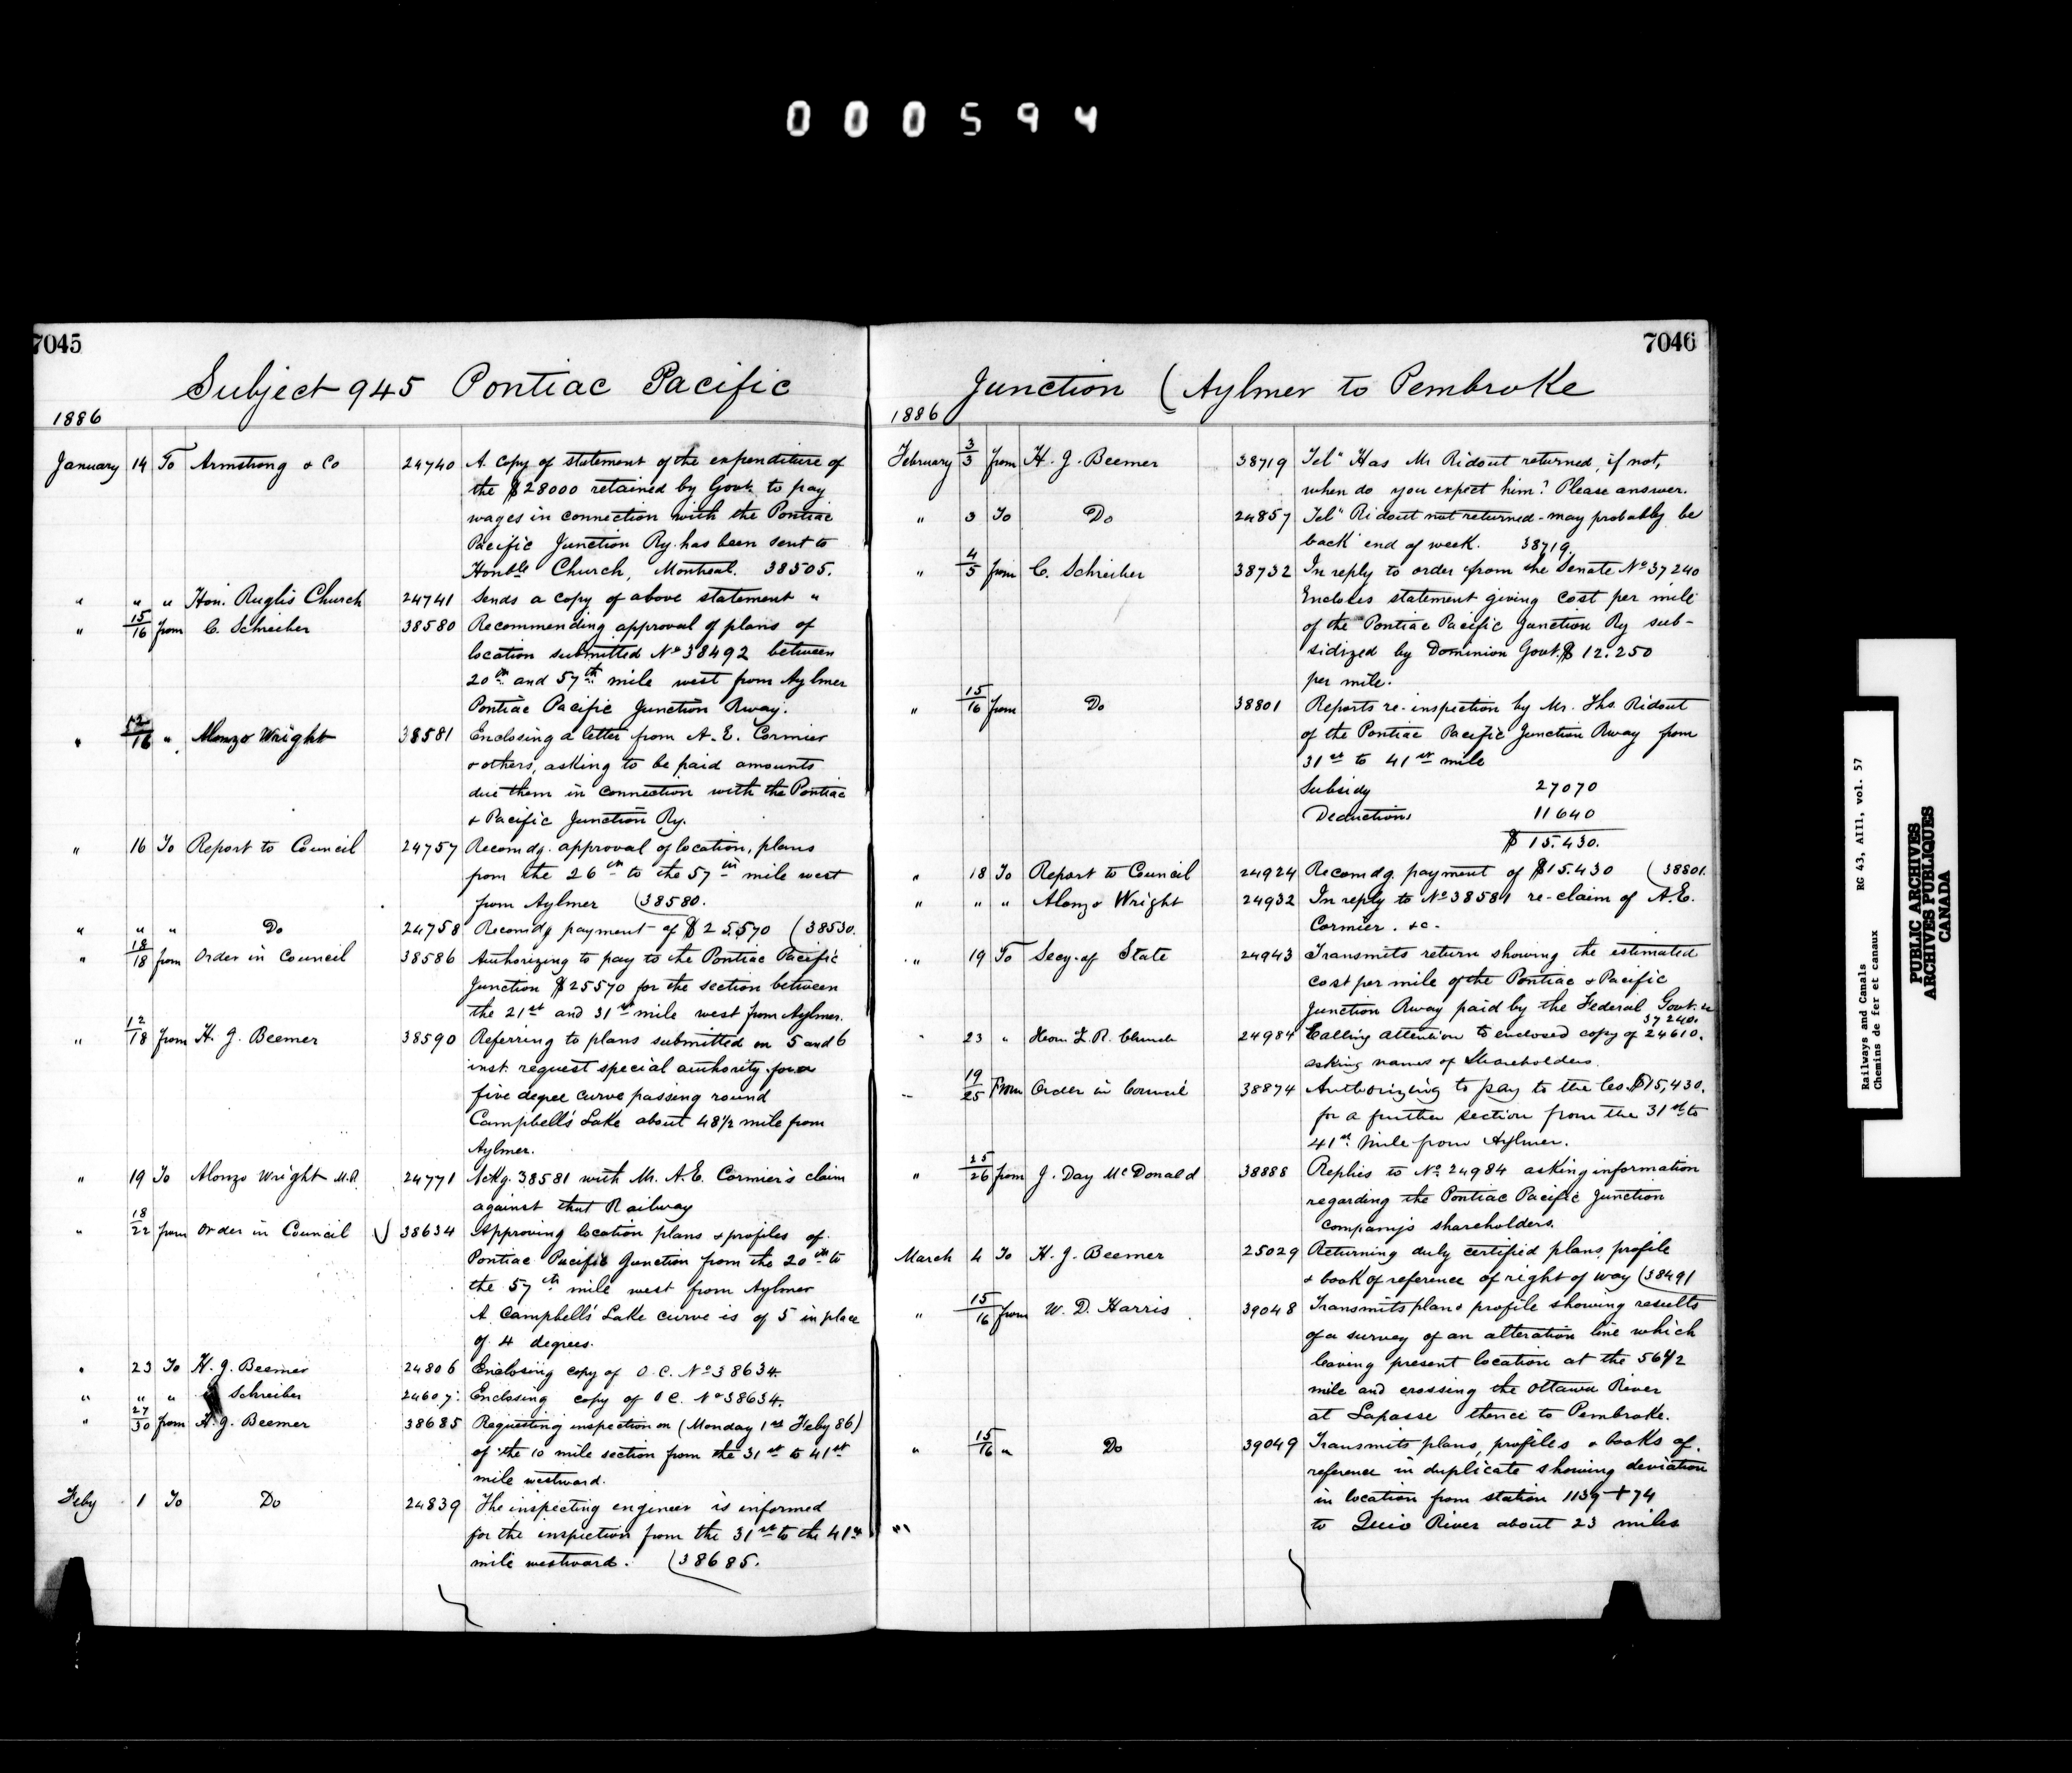 000594
7045
Subject 945 Pontiac Pacific
1886
January 14 To Armstrong & Co 24740 A copy of statement of the expenditure of
the $28000 retained by Govt. to pay
wages in connection with the Pontiac
Pacific Junction Ry. has been sent to
Honble Church, Montreal. 38505.
" " " Hon. Ruglis Church 24741 Sends a copy of above statement "
" 15/16 from C. Schreiber 38580 Recommending approval of plans of
location submitted No 38492 between
20th and 57th mile west from Aylmer
Pontiac Pacific Junction Rway.
" 12/16 " Alonzo Wright 38581 Enclosing a letter from A. E. Cormier
& others, asking to be paid amounts
due them in connection with the Pontiac
& Pacific Junction Ry.
" 16 To Report to Council 24757 Recomdg. approval of location, plans
from the 26th to the 57th mile west
from Aylmer (38580.
" " " Do 24758 Recomdg payment of $25570 (38530.
" 18/18 from Order in Council 38586 Authorizing to pay to the Pontiac Pacific
Junction $25570 for the section between
the 21st and 31st mile west from Aylmer.
" 12/18 from H. J. Beemer 38590 Referring to plans submitted on 5 and 6
inst. request special authority for a
five degree curve passing round
Campbell's Lake about 48 1/2 mile from
Aylmer.
" 19 To Alonzo Wright M.P. 24771 Ackg. 38581 with Mr. A. E. Cormier's claim
against that Railway
" 18/22 from Order in Council 38634 Approving location plans & profiles of
Pontiac Pacific Junction from the 20th to
the 57th mile west from Aylmer
A Campbell's Lake curve is of 5 in place
of 4 degrees.
" 23 To H. J. Beemer 24806 Enclosing copy of O.C. No 38634.
" " " Schreiber 24607. Enclosing copy of O C. No 38634.
" 27/30 from H. J. Beemer 38685 Requesting inspection on (Monday 1st Feby 86)
of the 10 mile section from the 31st to 41st
mile westward.
Feby 1 To Do 24839 The inspecting engineer is informed
for the inspection from the 31st to the 41st
mile westward. (38685.
7046
Junction (Aylmer to Pembroke
1886
February 3/3 from H. J. Beemer 38719 Tel" Has Mr Ridout returned, if not,
when do you expect him? Please answer.
" 3 To Do 24857 Tel" Ridout not returned - may probably be
back end of week. 38719.
" 4/5 from C. Schreiber 38732 In reply to order from the Senate No 37240
Encloses statement giving cost per mile
of the Pontiac Pacific Junction Ry sub-
sidized by Dominion Govt. $12.250
per mile.
" 15/16 from Do 38801 Reports re-inspection by Mr. Ths. Ridout
of the Pontiac Pacific Junction Rway from
31st to 41st mile
Subsidy 27070
Deductions 11640
$15.430.
" 18 To Report to Council 24924 Recomdg. payment of $15.430 (38801.
" " " Alonzo Wright 24932 In reply to No 38581 re-claim of A.E.
Cormier. &c.
" 19 To Secy. of State 24943 Transmits return showing the estimated
cost per mile of the Pontiac & Pacific
Junction Rway paid by the Federal Govt.
37240.
" 23 " Hon L. R. Church 24984 Calling attention to enclosed copy of 24610.
asking names of Shareholders.
" 19/25 From Order in Council 38874 Authorizing to pay to the Co. $15,430.
for a further section from the 31st to
41st mile from Aylmer.
" 25/26 from J. Day McDonald 38888 Replies to No 24984 asking information
regarding the Pontiac Pacific Junction
Company's shareholders.
March 4 To H. J. Beemer 25029 Returning duly certified plans, profile
& book of reference of right of way (38491
" 15/16 from W. D. Harris 39048 Transmits plan & profile showing results
of a survey of an alteration line which
leaving present location at the 56 1/2
mile and crossing the Ottawa River
at Lapasse thence to Pembroke.
" 15/16 " Do 39049 Transmits plans, profiles & books of
reference in duplicate showing deviation
in location from station 1139 + 74
to Quio River about 23 miles
Railways and Canals RG 43, AIII, vol. 57
Chemins de fer et canaux
PUBLIC ARCHIVES
ARCHIVES PUBLIQUES
CANADA